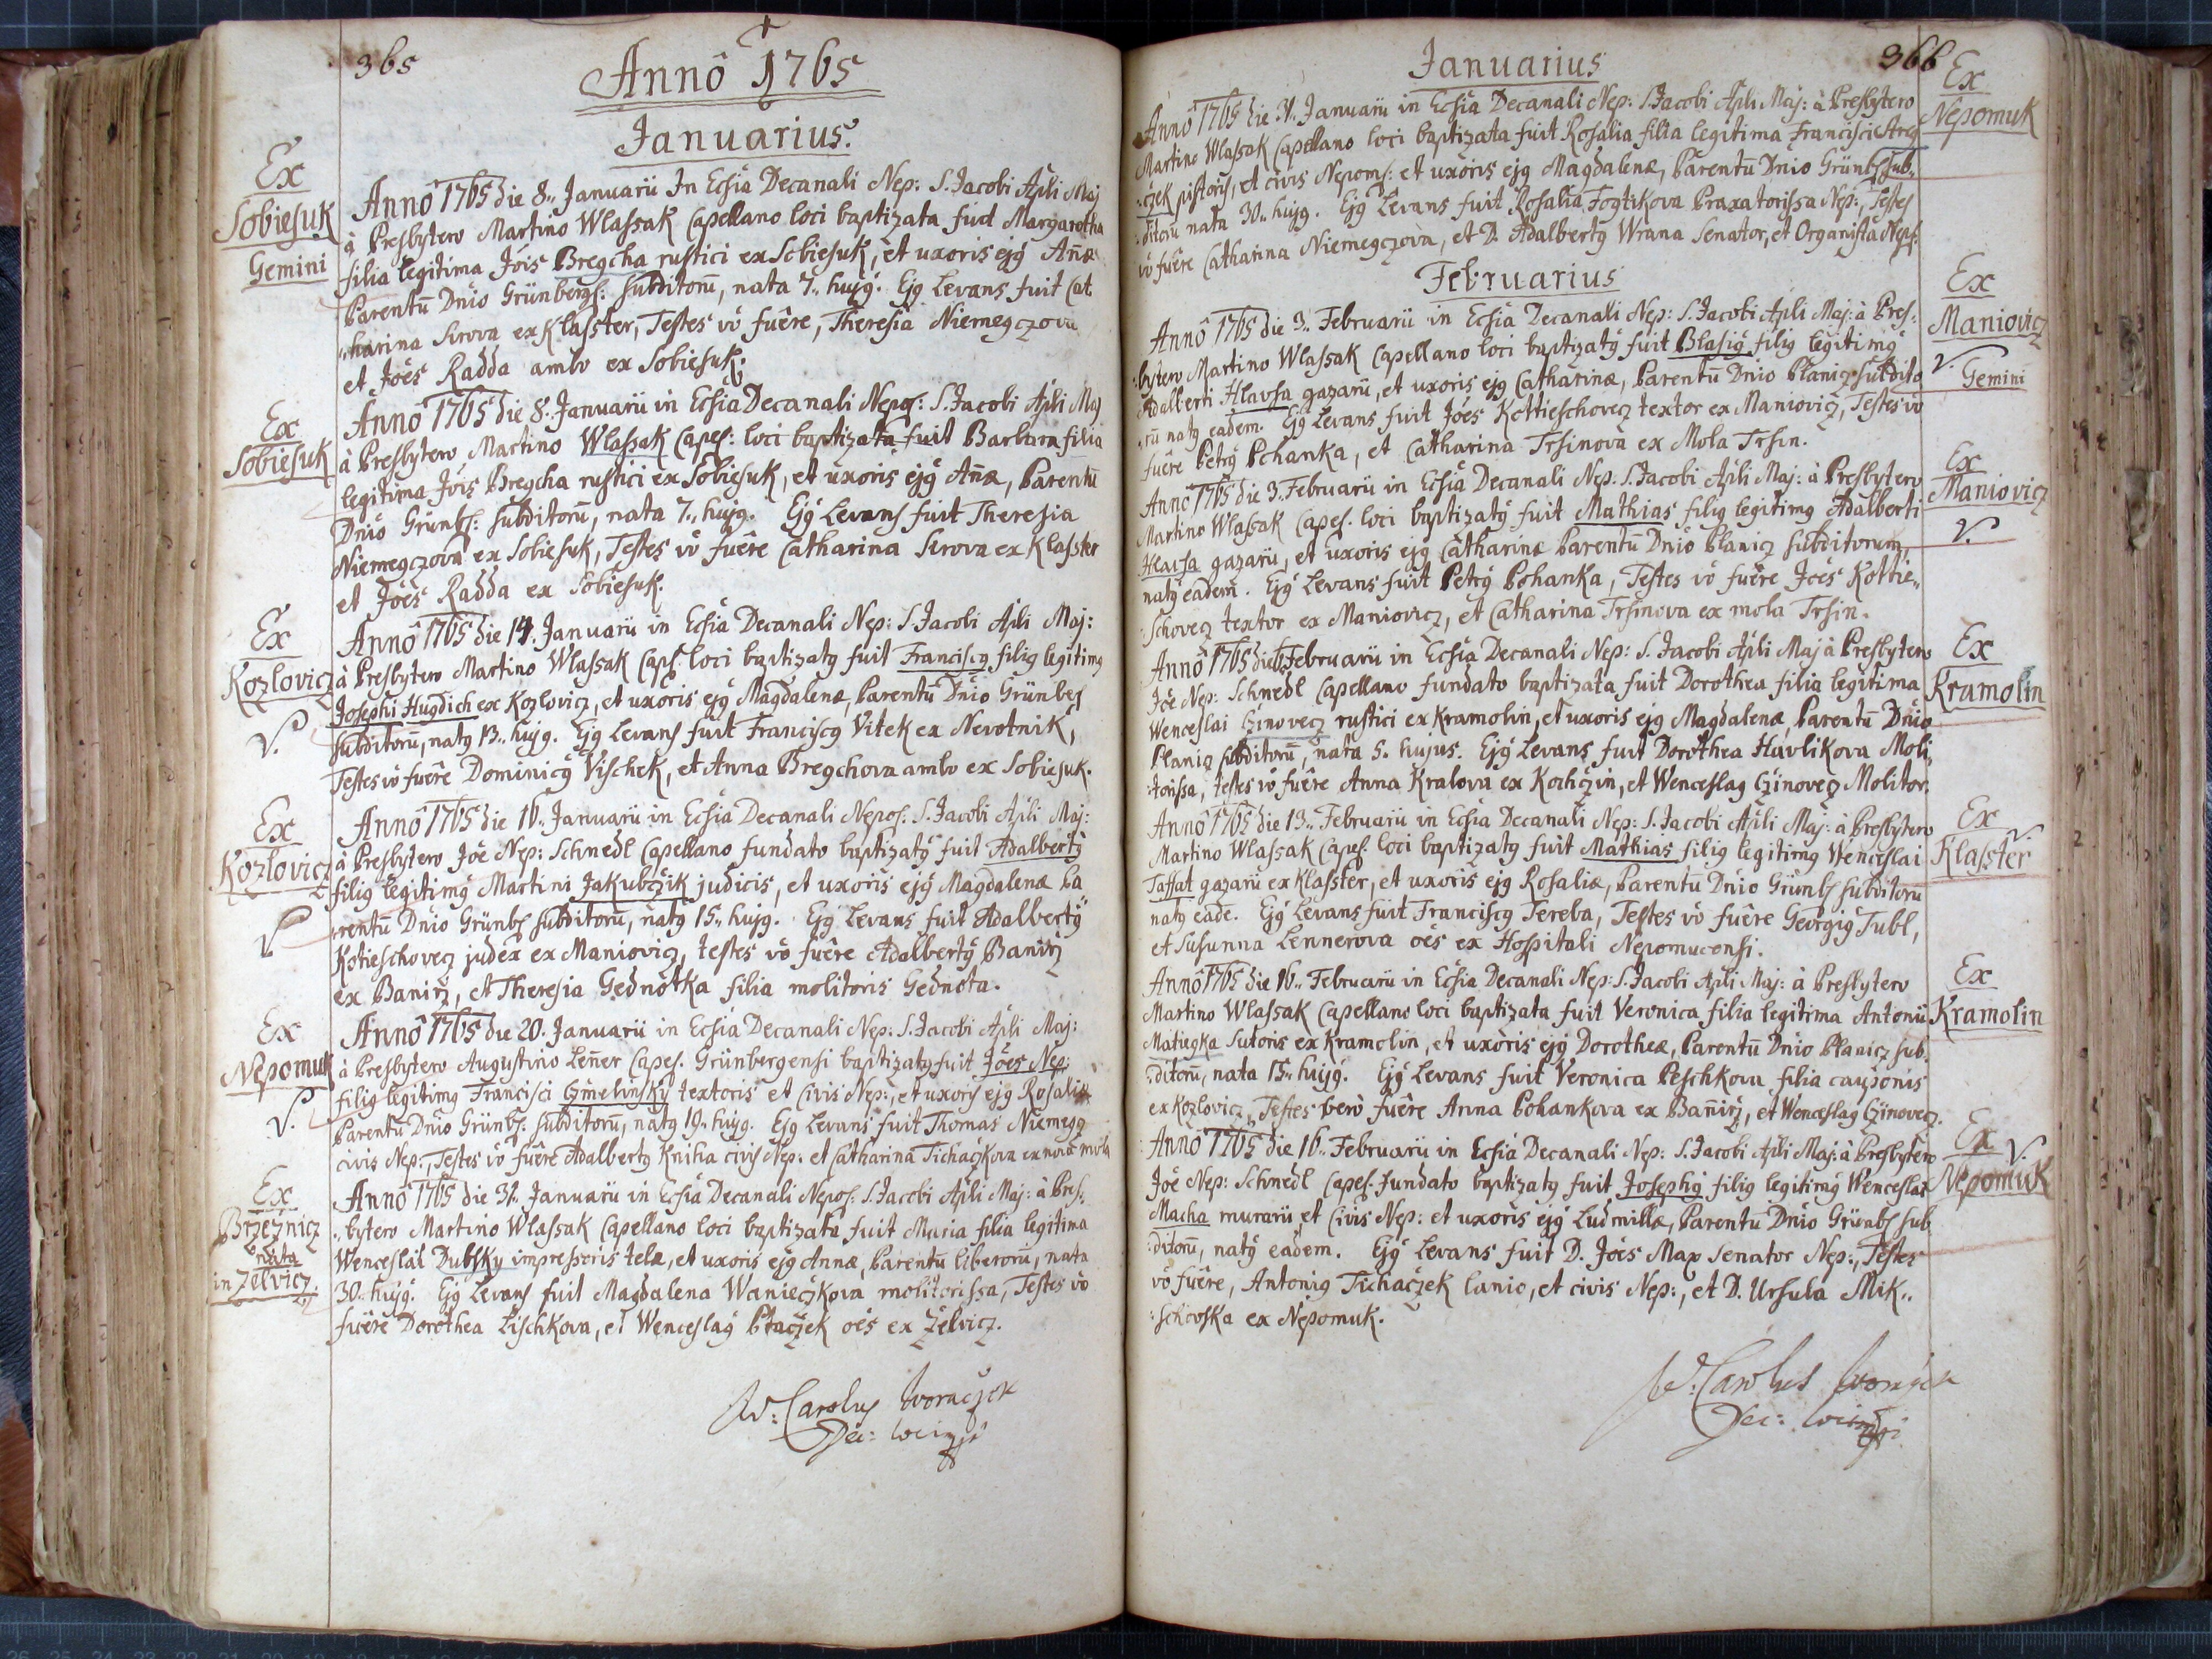 365
Annô 1765
Januarius.
Ex
Sobiesuk
Gemini
Annô 1765 die 8. Januarii In Ecsia Decanali Nep: S. Jacobi Apli Maj
à Presbytero Martino Wlassak Capellano loci baptizata fuit Margaretha
filia legitima Jois Bregcha rustici ex Sobiesuk, et uxoris ejq Añæ
Parentū Dnio Grünbergs: subditorū, nata 7. hujq. Ejq Levans fuit Cat
harina Sirova ex Klasster, Testes vô fuêre, Theresia Niemegczova
et Joês Radda ambo ex Sobiesuk.
Ex
Sobiesuk
Annô 1765 die 8. Januarii in Ecsia Decanali Nepos: S. Jacobi Apli Maj
à Presbytero Martino Wlassak Capes: loci baptizata fuit Barbara filia
legitima Jois Bregcha rustici ex Sobiesuk, et uxoris ejq Añæ, Parentū
Dnio Grünbs: subditorū, nata 7. hujq. Ejq Levans fuit Theresia
Niemegczova ex Sobiesuk, Testes vô fuêre Catharina Sirova ex Klasster
et Joês Radda ex Sobiesuk.
Ex
Kozlovicz
V.
Annô 1765 die 14. Januarii in Ecsia Decanali Nep: S. Jacobi Apli Maj:
à Presbytero Martino Wlassak Caps. loci baptizatq fuit Franciscq filiq legitimq
Josephi Hugdich ex Kozlovicz, et uxoris ejq Magdalenæ, Parentū Dnio Grünbes
subditorū, natq 13. hujq. Ejq Levans fuit Franciscq Vitek ex Nevotnik,
Testes vô fuêre Dominicq Vischek, et Anna Bregchova ambo ex Sobiesuk.
Ex
Kozlovicz
V
Annô 1765 die 16. Januarii in Ecsia Decanali Nepos. S. Jacobi Apli Maj:
à Presbytero Joê Nep: Schnedl Capellano fundato baptizatq fuit Adalbertq
filiq legitimq Martini Jakubczik judicis, et uxoris ejq Magdalenæ Pa
rentū Dnio Grünbs subditorū, natq 15. hujq. Ejq Levans fuit Adalbertq
Kotieschovecz judex ex Maniovicz, testes vô fuêre Adalbertq Banirz
ex Banirz, et Theresia Gednotka filia molitoris Gednota.
Ex
Nepomuk
V.
Annô 1765 die 20. Januarii in Ecsia Decanali Nep: S. Jacobi Apli Maj:
à Presbytero Augustino Leñer Capes. Grünbergensi baptizatq fuit Joês Nep:
filiq legitimq Francisci Czmelinsky textoris et Civis Nep:, et uxoris ejq Rosaliæ
Parentū Dnio Grünbs: subditorū, natq 19. hujq. Ejq Levans fuit Thomas Niemegq
civis Nep:, Testes vô fuêre Adalbertq Kniha civis Nep: et Catharina Tichaczkova ex nova mola
Ex
Brzeznicz
nata
in Zelvicz
Annô 1765 die 31. Januarii in Ecsia Decanali Nepos. S. Jacobi Apli Maj: à Pres:
bytero Martino Wlassak Capellano loci baptizata fuit Maria filia legitima
Wenceslai Dubsky impressoris telæ, et uxoris ejq Annæ, Parentū liberorū, nata
30. hujq. Ejq Levans fuit Magdalena Wanieczkova molitorissa, Testes vô
fuêre Dorothea Lischkova, et Wenceslaq Ptaczek oês ex Zelvicz.
Carolus Dworaczek
Dec: loci
366
Januarius
Ex
Nepomuk
Annô 1765 die 31. Januarii in Ecsia Decanali Nep: S. Jacobi Apli Maj: à Presbytero
Martino Wlassak Capellano loci baptizata fuit Rosalia filia legitima Francisci Strej
czek pistoris, et civis Nepoms: et uxoris ejq Magdalenæ, Parentū Dnio Grünbs sub
ditorū nata 30. hujq. Ejq Levans fuit Rosalia Fogtikova Braxatorissa Nep:, Testes
vô fuêre Catharina Niemegczova, et D. Adalbertq Wrana Senator, et Organista Neps.
Februarius
Ex
Maniovicz
V. Gemini
Annô 1765 die 3. Februarii in Ecsia Decanali Nep: S. Jacobi Apli Maj: à Pres:
bytero Martino Wlassak Capellano loci baptizatq fuit Blasiq filiq legitimq
Adalberti Hlavsa gazarii, et uxoris ejq Catharinæ, Parentū Dnio Planicz subdito
rū natq eadem. Ejq Levans fuit Joês Kottieschovecz textor ex Maniovicz, Testes vô
fuêre Petrq Pohanka, et Catharina Trsinova ex Mola Trsin.
Ex
Maniovicz
V.
Annô 1765 die 3. Februarii in Ecsia Decanali Nep: S. Jacobi Apli Maj: à Presbytero
Martino Wlassak Capes. loci baptizatq fuit Mathias filiq legitimq Adalberti
Hlavsa gazarii, et uxoris ejq Catharinæ Parentū Dnio Planicz subditorum,
natq eadem. Ejq Levans fuit Petrq Pohanka, Testes vô fuêre Joês Kottie
schovecz textor ex Maniovicz, et Catharina Trsinova ex mola Trsin.
Ex
Kramolin
Annô 1765 die 6. Februarii in Ecsia Decanali Nep: S. Jacobi Apli Maj à Presbytero
Joê Nep: Schnedl Capellano fundato baptizata fuit Dorothea filia legitima
Wenceslai Czinovecz rustici ex Kramolin, et uxoris ejq Magdalenæ, Parentū Dnio
Planicz subditorū, nata 5. hujus. Ejq Levans fuit Dorothea Havlikova Moli
torissa, testes vô fuêre Anna Kralova ex Kochczin, et Wenceslaq Czinovecz Molitor.
Ex
V.
Klasster
Annô 1765 die 13. Februarii in Ecsia Decanali Nep: S. Jacobi Apli Maj: à Presbytero
Martino Wlassak Capes. loci baptizatq fuit Mathias filiq legitimq Wenceslai
Taffat gazarii ex Klasster, et uxoris ejq Rosaliæ, Parentū Dnio Grünbs subditorū
natq eadê. Ejq Levans fuit Franciscq Tereba, Testes vô fuêre Georgiq Tubl,
et Susanna Lennerova oês ex Hospitali Nepomucensi.
Ex
Kramolin
Annô 1765 die 16. Februarii in Ecsia Decanali Nep: S. Jacobi Apli Maj: à Presbytero
Martino Wlassak Capellano loci baptizata fuit Veronica filia legitima Antonii
Matiegka Sutoris ex Kramolin, et uxoris ejq Dorotheæ, Parentū Dnio Planicz sub
ditorū, nata 15. hujq. Ejq Levans fuit Veronica Peschkova filia cauponis
ex Kozlovicz, Testes verò fuêre Anna Pohankova ex Bañirz, et Wenceslaq Czinovecz.
Ex V.
Nepomuk
Annô 1765 die 16. Februarii in Ecsia Decanali Nep: S. Jacobi Apli Maj: à Presbytero
Joê Nep: Schnedl Capes. fundato baptizatq fuit Josephq filiq legitimq Wenceslai
Macha murarii et Civis Nep: et uxoris ejq Ludmillæ, Parentū Dnio Grünbs sub
ditorū, natq eadem. Ejq Levans fuit D. Joês Max Senator Nep:, Testes
vô fuêre, Antoniq Tichaczek lanio, et civis Nep:, et D. Ursula Mik
schovska ex Nepomuk.
Carolus Dworaczek
Dec: loci